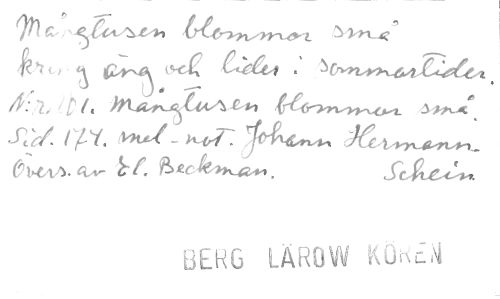 Mångtusen blommor små
kring äng och lider i sommartider.
N:r 101. Mångtusen blommor små.
Sid. 174. mel-not. Johann Hermann-
Övers. av El. Beckman. Schein.
BERG LÄROW KÖREN